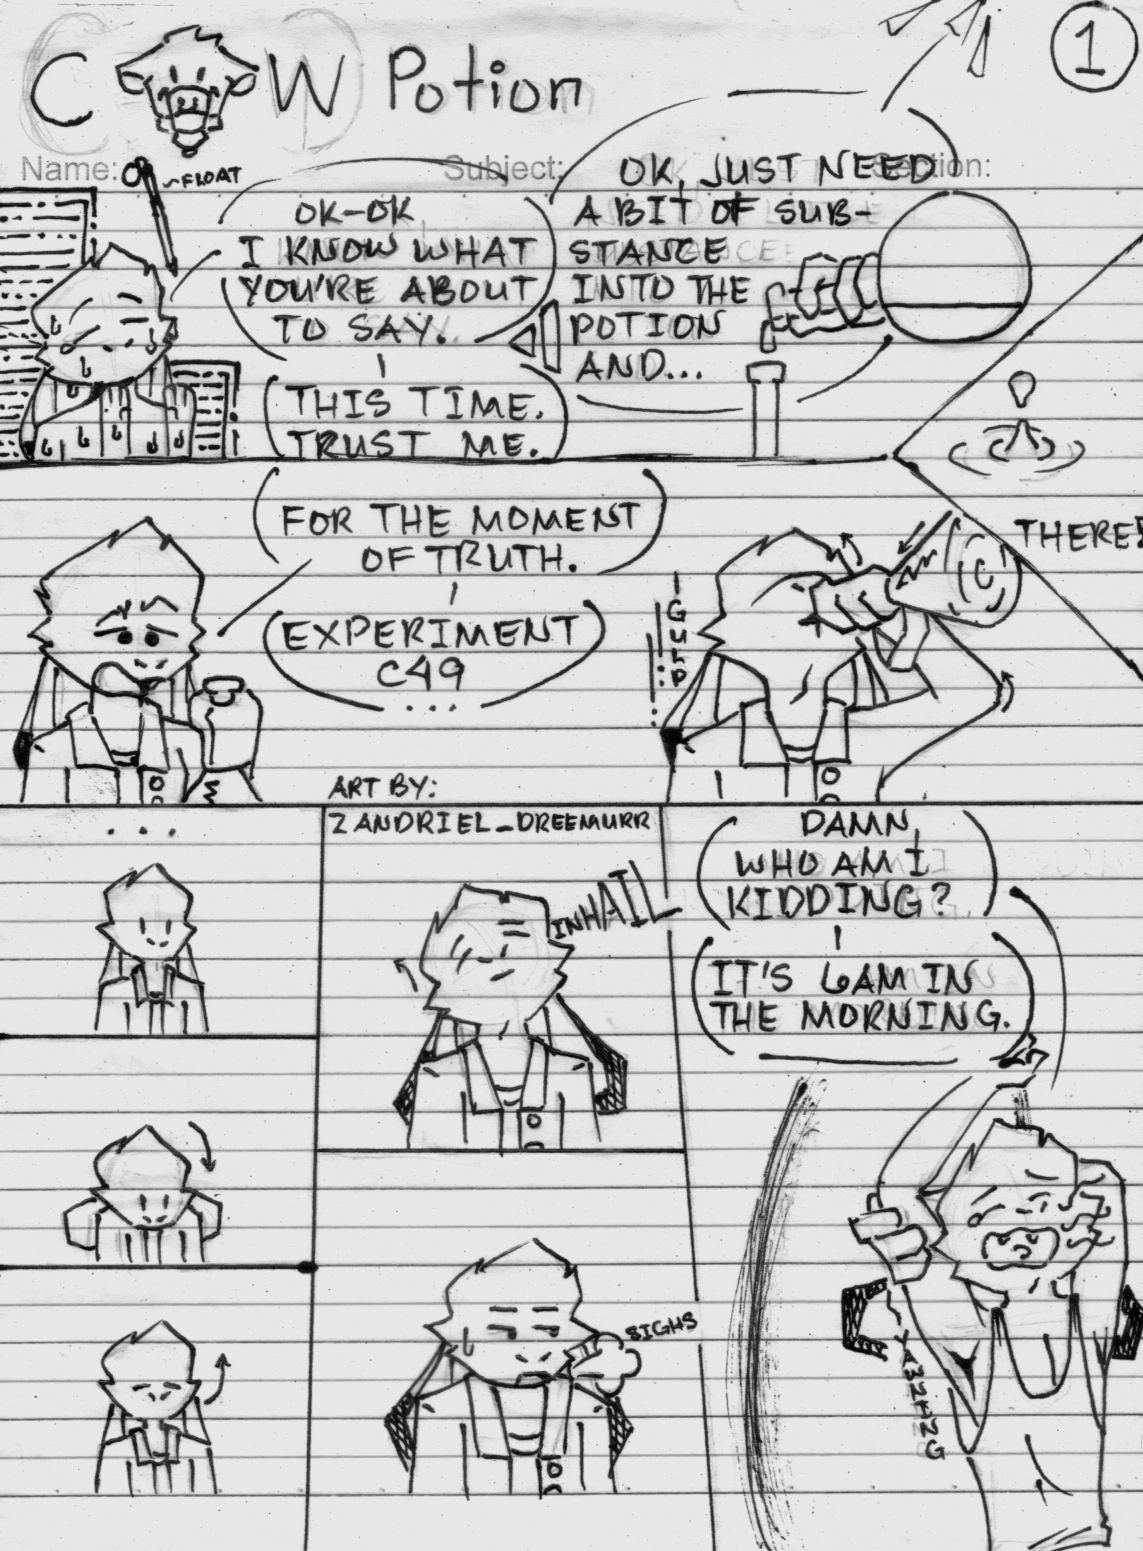 1
C W Potion
Name:
Subject:
Section:
FLOAT
OK-OK
I KNOW WHAT
YOU'RE ABOUT
TO SAY.
THIS TIME.
TRUST ME.
OK, JUST NEED
A BIT OF SUB-
STANCE
INTO THE
POTION
AND...
THERE!
FOR THE MOMENT
OF TRUTH.
EXPERIMENT
C49
...
GULP
C
ART BY:
ZANDRIEL_DREEMURR
...
INHAIL
SIGHS
DAMN,
WHO AM I
KIDDING?
IT'S 6AM IN
THE MORNING.